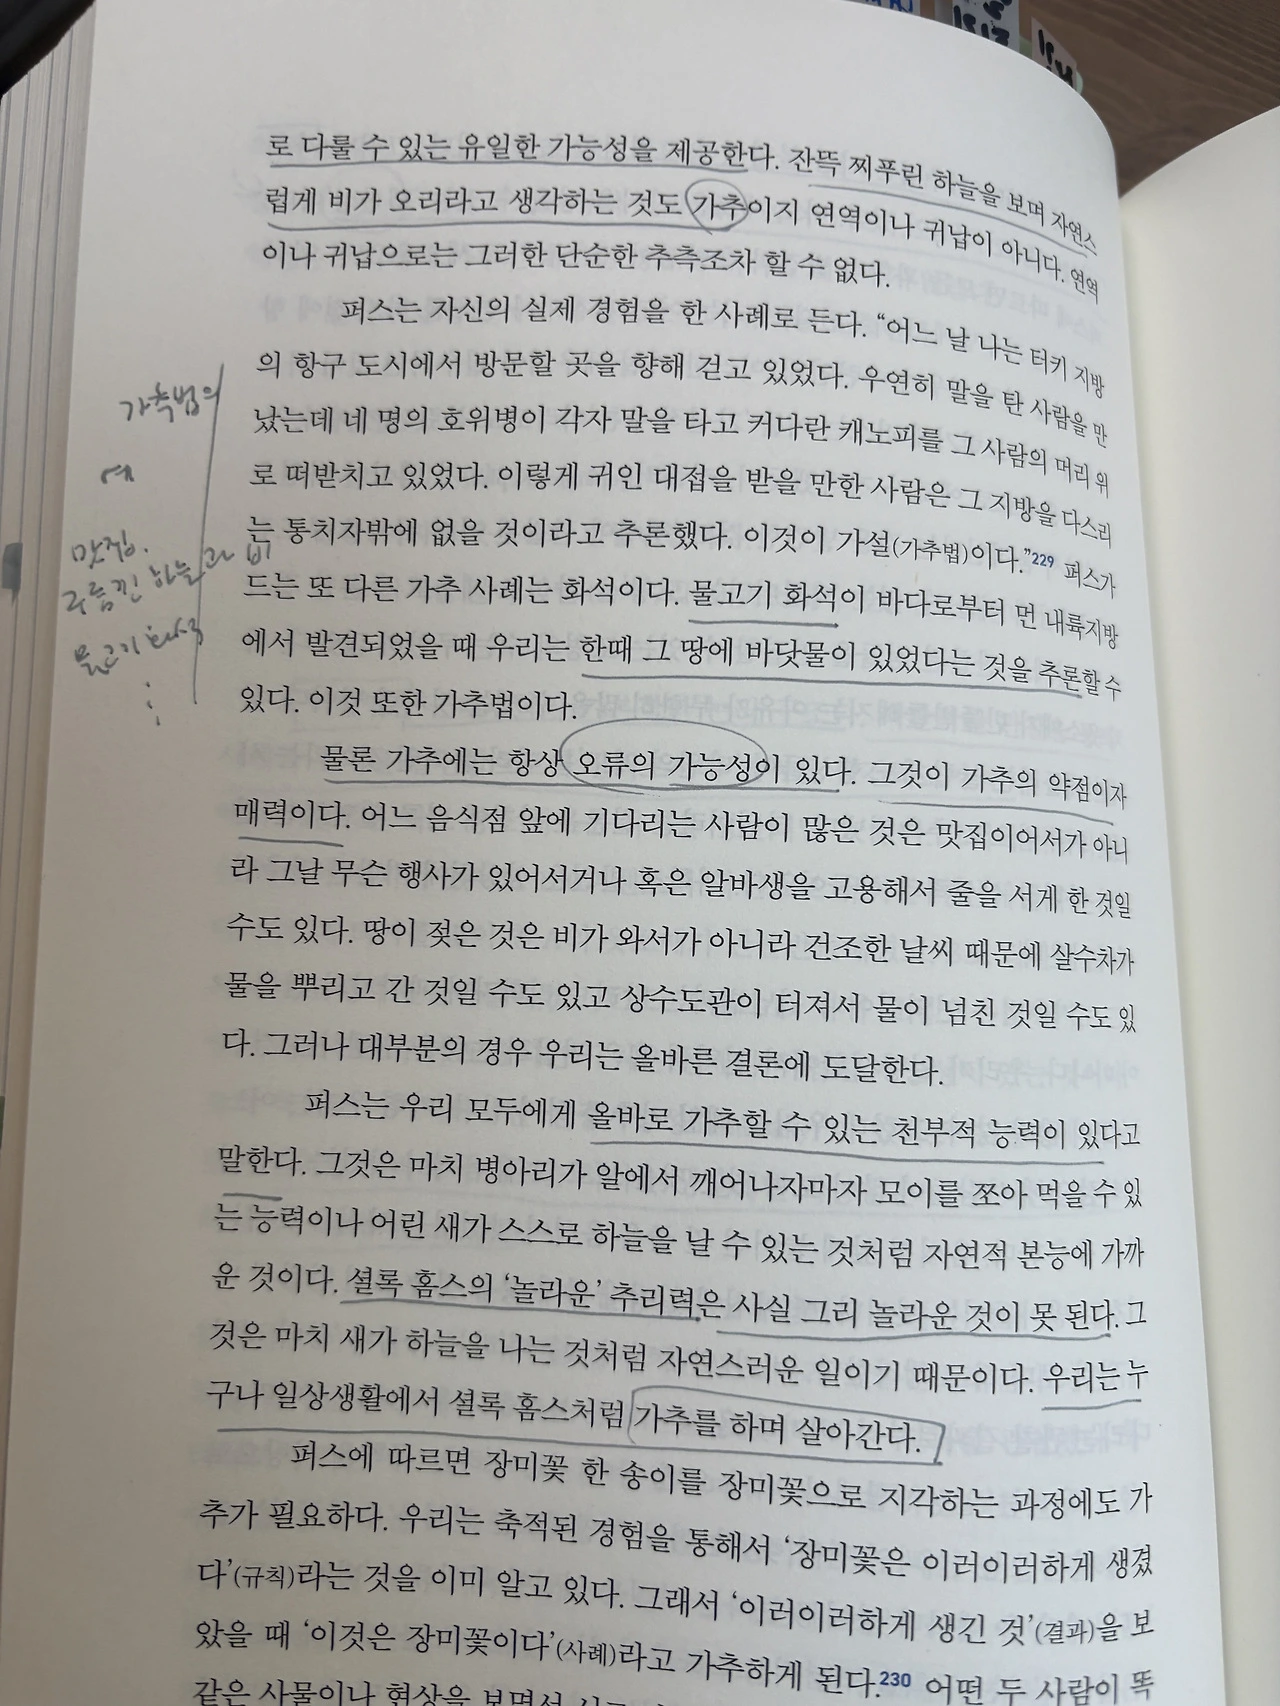 로 다룰 수 있는 유일한 가능성을 제공한다. 잔뜩 찌푸린 하늘을 보며 자연스
럽게 비가 오리라고 생각하는 것도 가추이지 연역이나 귀납이 아니다. 연역
이나 귀납으로는 그러한 단순한 추측조차 할 수 없다.
퍼스는 자신의 실제 경험을 한 사례로 든다. “어느 날 나는 터키 지방
의 항구 도시에서 방문할 곳을 향해 걷고 있었다. 우연히 말을 탄 사람을 만
났는데 네 명의 호위병이 각자 말을 타고 커다란 캐노피를 그 사람의 머리 위
로 떠받치고 있었다. 이렇게 귀인 대접을 받을 만한 사람은 그 지방을 다스리
는 통치자밖에 없을 것이라고 추론했다. 이것이 가설(가추법)이다.”229 퍼스가
드는 또 다른 가추 사례는 화석이다. 물고기 화석이 바다로부터 먼 내륙지방
에서 발견되었을 때 우리는 한때 그 땅에 바닷물이 있었다는 것을 추론할 수
있다. 이것 또한 가추법이다.
물론 가추에는 항상 오류의 가능성이 있다. 그것이 가추의 약점이자
매력이다. 어느 음식점 앞에 기다리는 사람이 많은 것은 맛집이어서가 아니
라 그날 무슨 행사가 있어서거나 혹은 알바생을 고용해서 줄을 서게 한 것일
수도 있다. 땅이 젖은 것은 비가 와서가 아니라 건조한 날씨 때문에 살수차가
물을 뿌리고 간 것일 수도 있고 상수도관이 터져서 물이 넘친 것일 수도 있
다. 그러나 대부분의 경우 우리는 올바른 결론에 도달한다.
퍼스는 우리 모두에게 올바로 가추할 수 있는 천부적 능력이 있다고
말한다. 그것은 마치 병아리가 알에서 깨어나자마자 모이를 쪼아 먹을 수 있
는 능력이나 어린 새가 스스로 하늘을 날 수 있는 것처럼 자연적 본능에 가까
운 것이다. 셜록 홈스의 ‘놀라운’ 추리력은 사실 그리 놀라운 것이 못 된다. 그
것은 마치 새가 하늘을 나는 것처럼 자연스러운 일이기 때문이다. 우리는 누
구나 일상생활에서 셜록 홈스처럼 가추를 하며 살아간다.
퍼스에 따르면 장미꽃 한 송이를 장미꽃으로 지각하는 과정에도 가
추가 필요하다. 우리는 축적된 경험을 통해서 ‘장미꽃은 이러이러하게 생겼
다’(규칙)라는 것을 이미 알고 있다. 그래서 ‘이러이러하게 생긴 것’(결과)을 보
았을 때 ‘이것은 장미꽃이다’(사례)라고 가추하게 된다.230 어떤 두 사람이 똑
같은 사물이나 현상을 보면서
가추법의
예
맛집.
구름낀 하늘과 비
물고기 화석